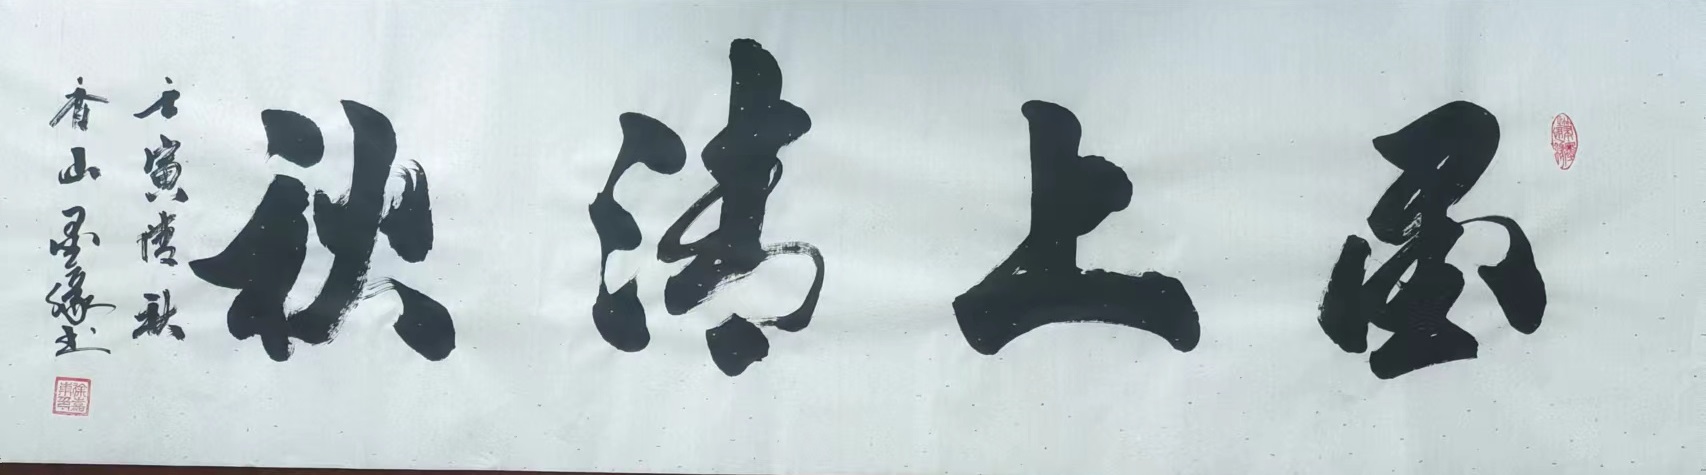 墨上清秋
壬寅清秋
香山墨缘书